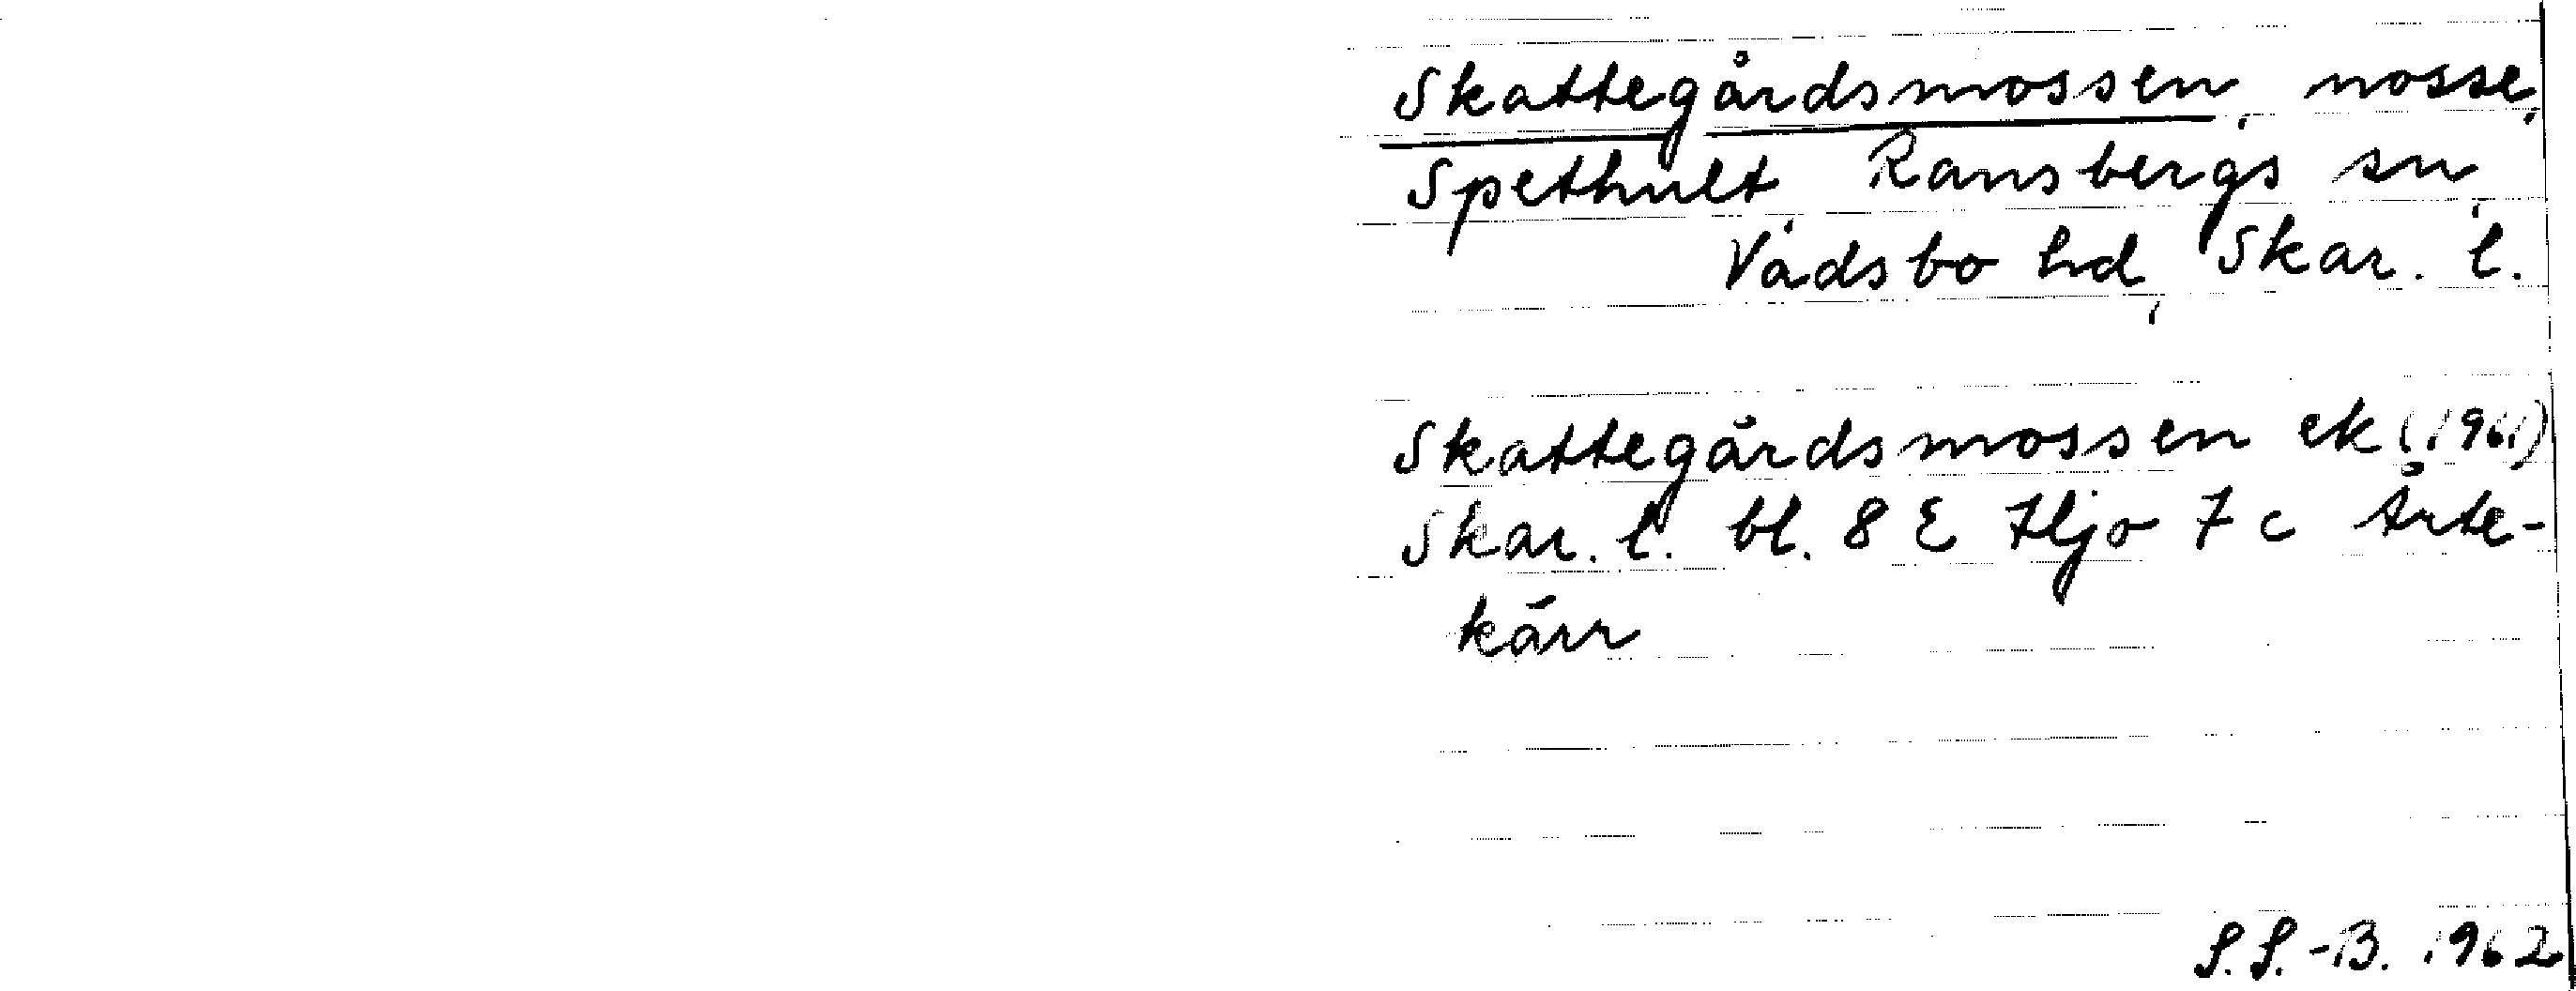 Skattegårdsmossen, mosse,
Spethult, Ransbergs sn,
Vadsbo hd, Skar. l.
Skattegårdsmossen ek (1961)
Skar. l. bl. 8 E Hjo 7 c Ärte-
kärr
S.S.-B. 1962